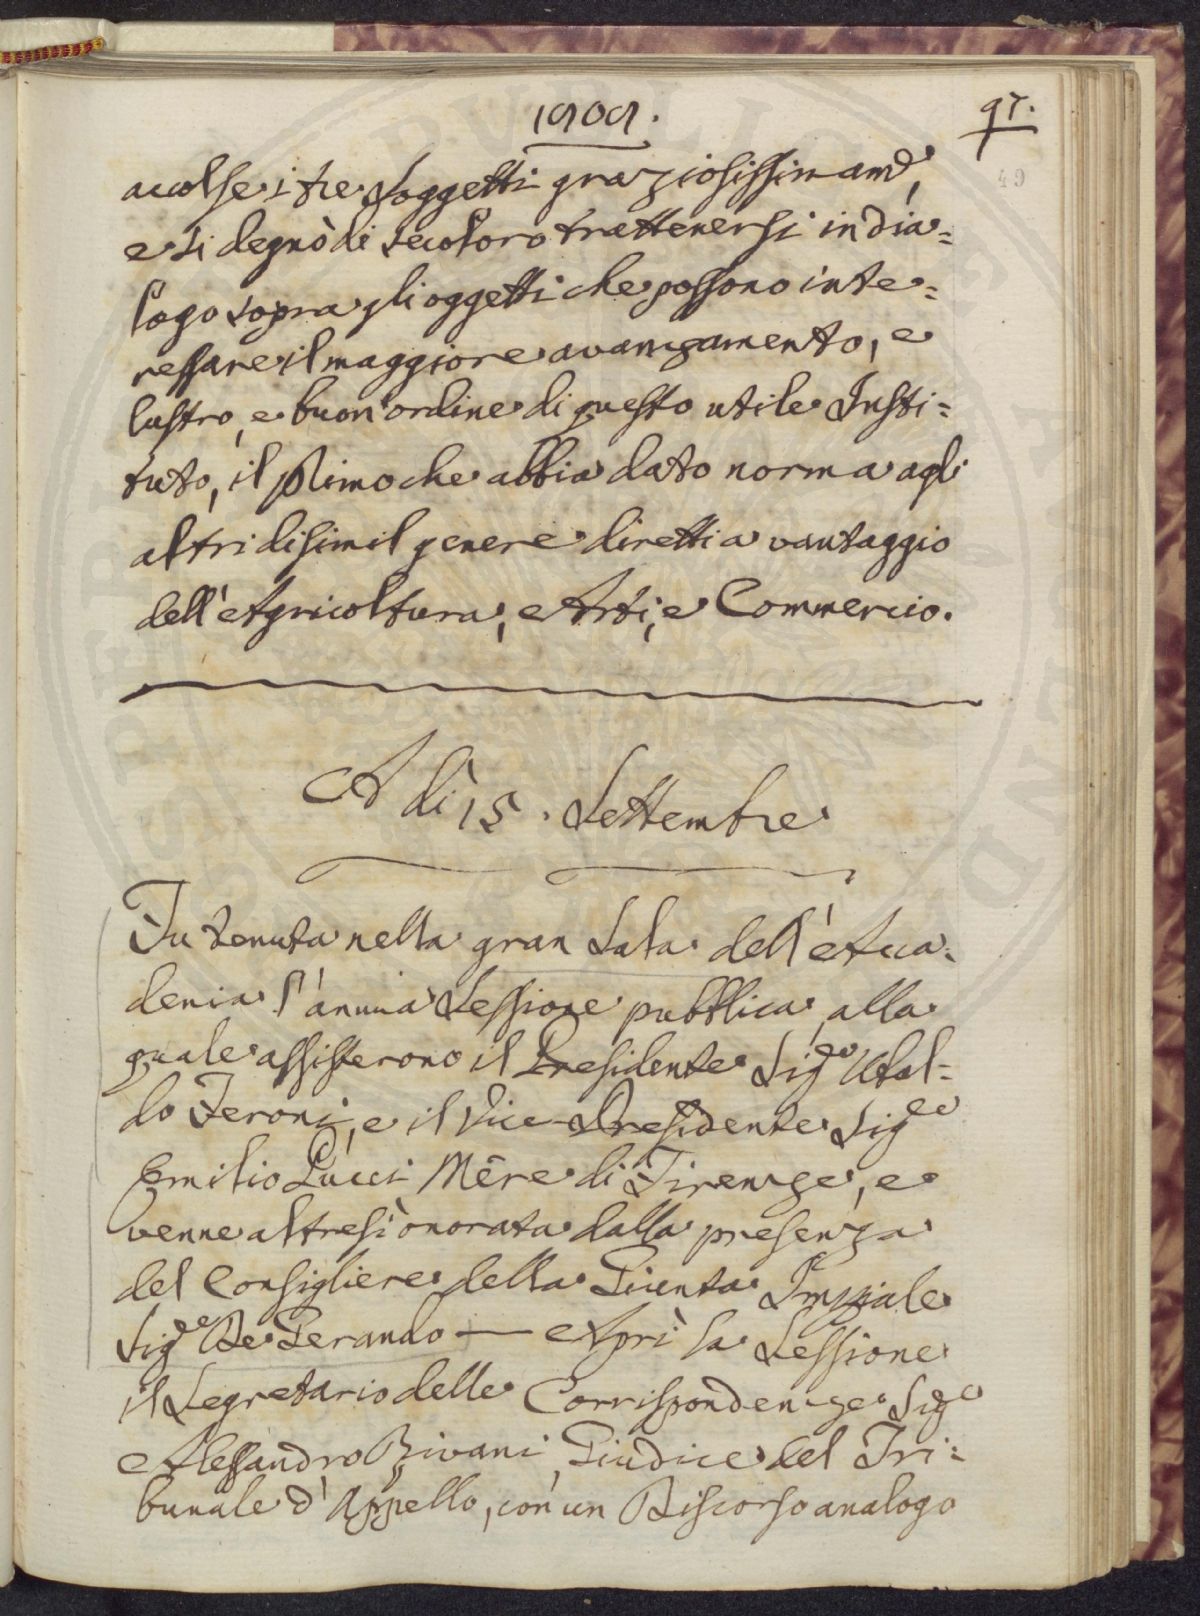 1809.
97.
49
accolse i tre Soggetti graziosissimam.e,
e si degnò di secoloro trattenersi in dia=
logo sopra gli oggetti che possono inte=
ressare il maggiore avanzamento, e
lustro, e buon'ordine di questo utile Insti=
tuto, il Primo che abbia dato norma agli
altri di simil genere diretti a vantaggio
dell'Agricoltura, Arti, e Commercio.
A dì 15. Settembre
Fu tenuta nella gran Sala dell'Acca=
demia l'annua Sessione pubblica, alla
quale assisterono il Presidente Sig.e Ubal=
do Feroni, e il Vice-Presidente Sig.e
Emilio Pucci Mere di Firenze, e
venne altresì onorata dalla presenza
del Consigliere della Giunta Imp.iale
Sig.e De Gerando — Aprì la Sessione
il Segretario delle Corrispondenze Sig.e
Alessandro Rivani, Giudice del Tri=
bunale d'Appello, con un Discorso analogo